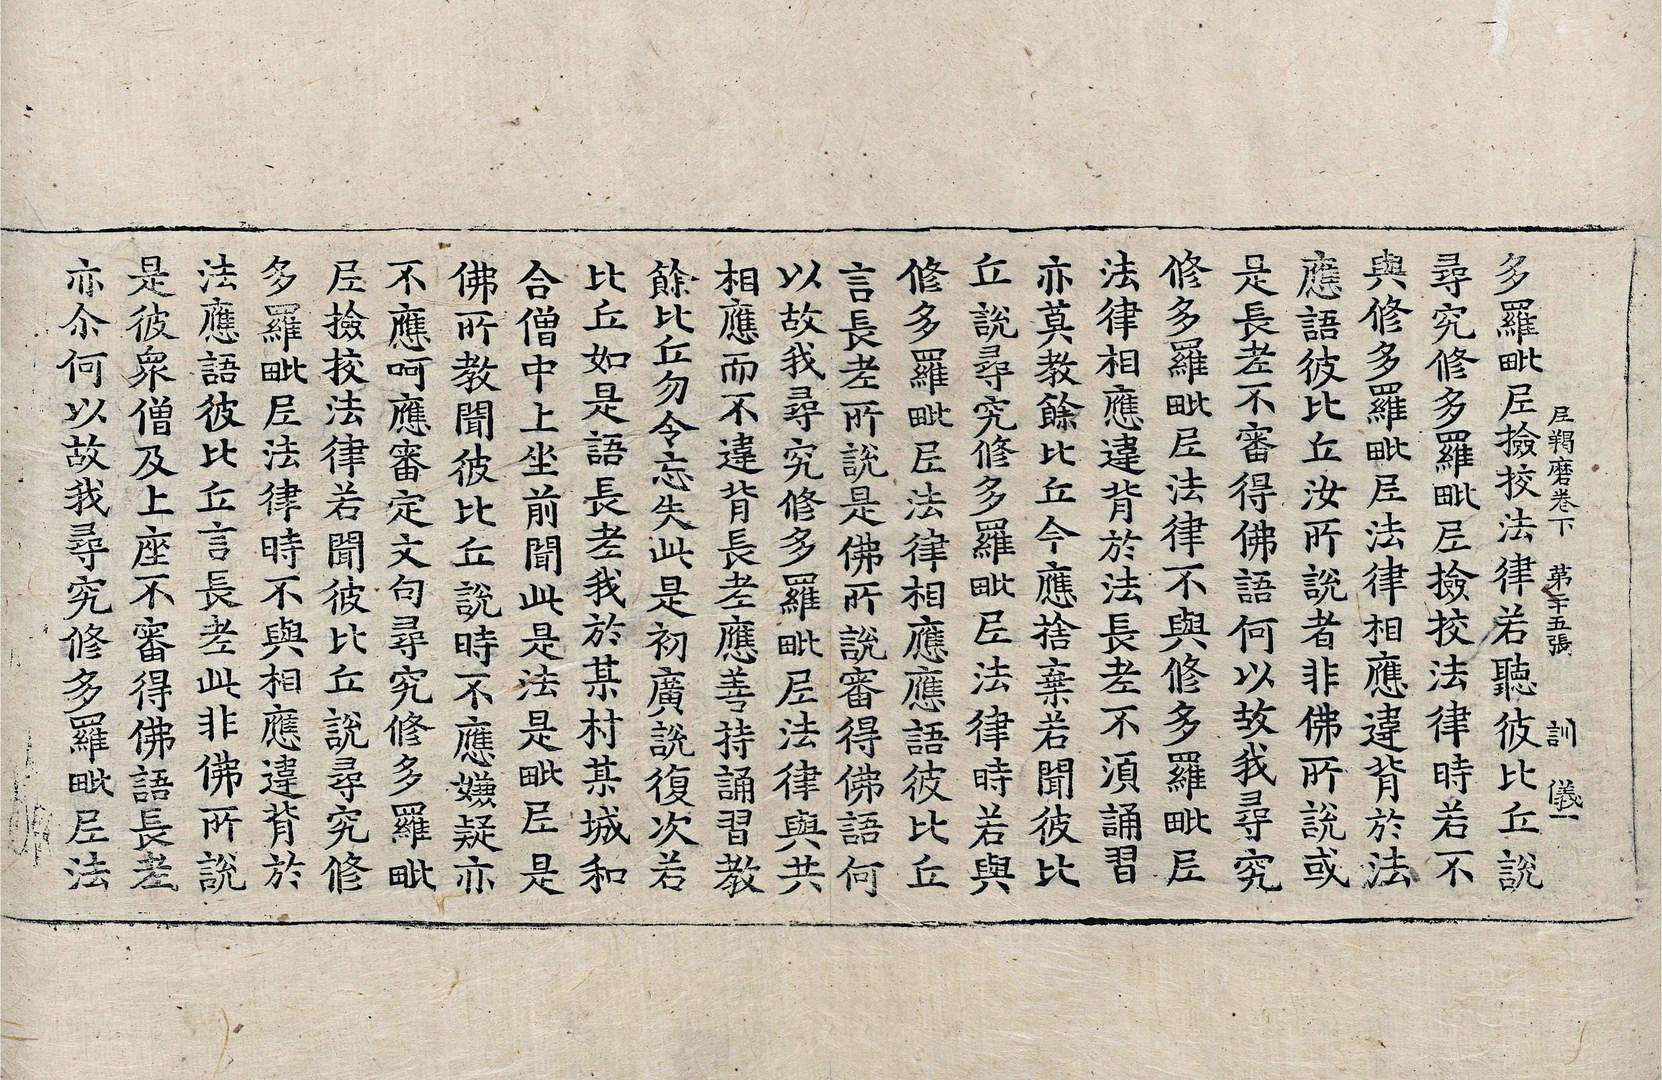 尼羯磨卷下 第二十五張 訓 儀一
多羅毗尼撿挍法律若聽彼比丘說
尋究修多羅毗尼撿挍法律時若不
與修多羅毗尼法律相應違背於法
應語彼比丘汝所說者非佛所說或
是長老不審得佛語何以故我尋究
修多羅毗尼法律不與修多羅毗尼
法律相應違背於法長老不須誦習
亦莫教餘比丘今應捨棄若聞彼比
丘說尋究修多羅毗尼法律時若與
修多羅毗尼法律相應應語彼比丘
言長老所說是佛所說審得佛語何
以故我尋究修多羅毗尼法律與共
相應而不違背長老應善持誦習教
餘比丘勿令忘失此是初廣說復次若
比丘如是語長老我於某村某城和
合僧中上坐前聞此是法是毗尼是
佛所教聞彼比丘說時不應嫌疑亦
不應呵應審定文句尋究修多羅毗
尼撿挍法律若聞彼比丘說尋究修
多羅毗尼法律時不與相應違背於
法應語彼比丘言長老此非佛所說
是彼衆僧及上座不審得佛語長老
亦尒何以故我尋究修多羅毗尼法